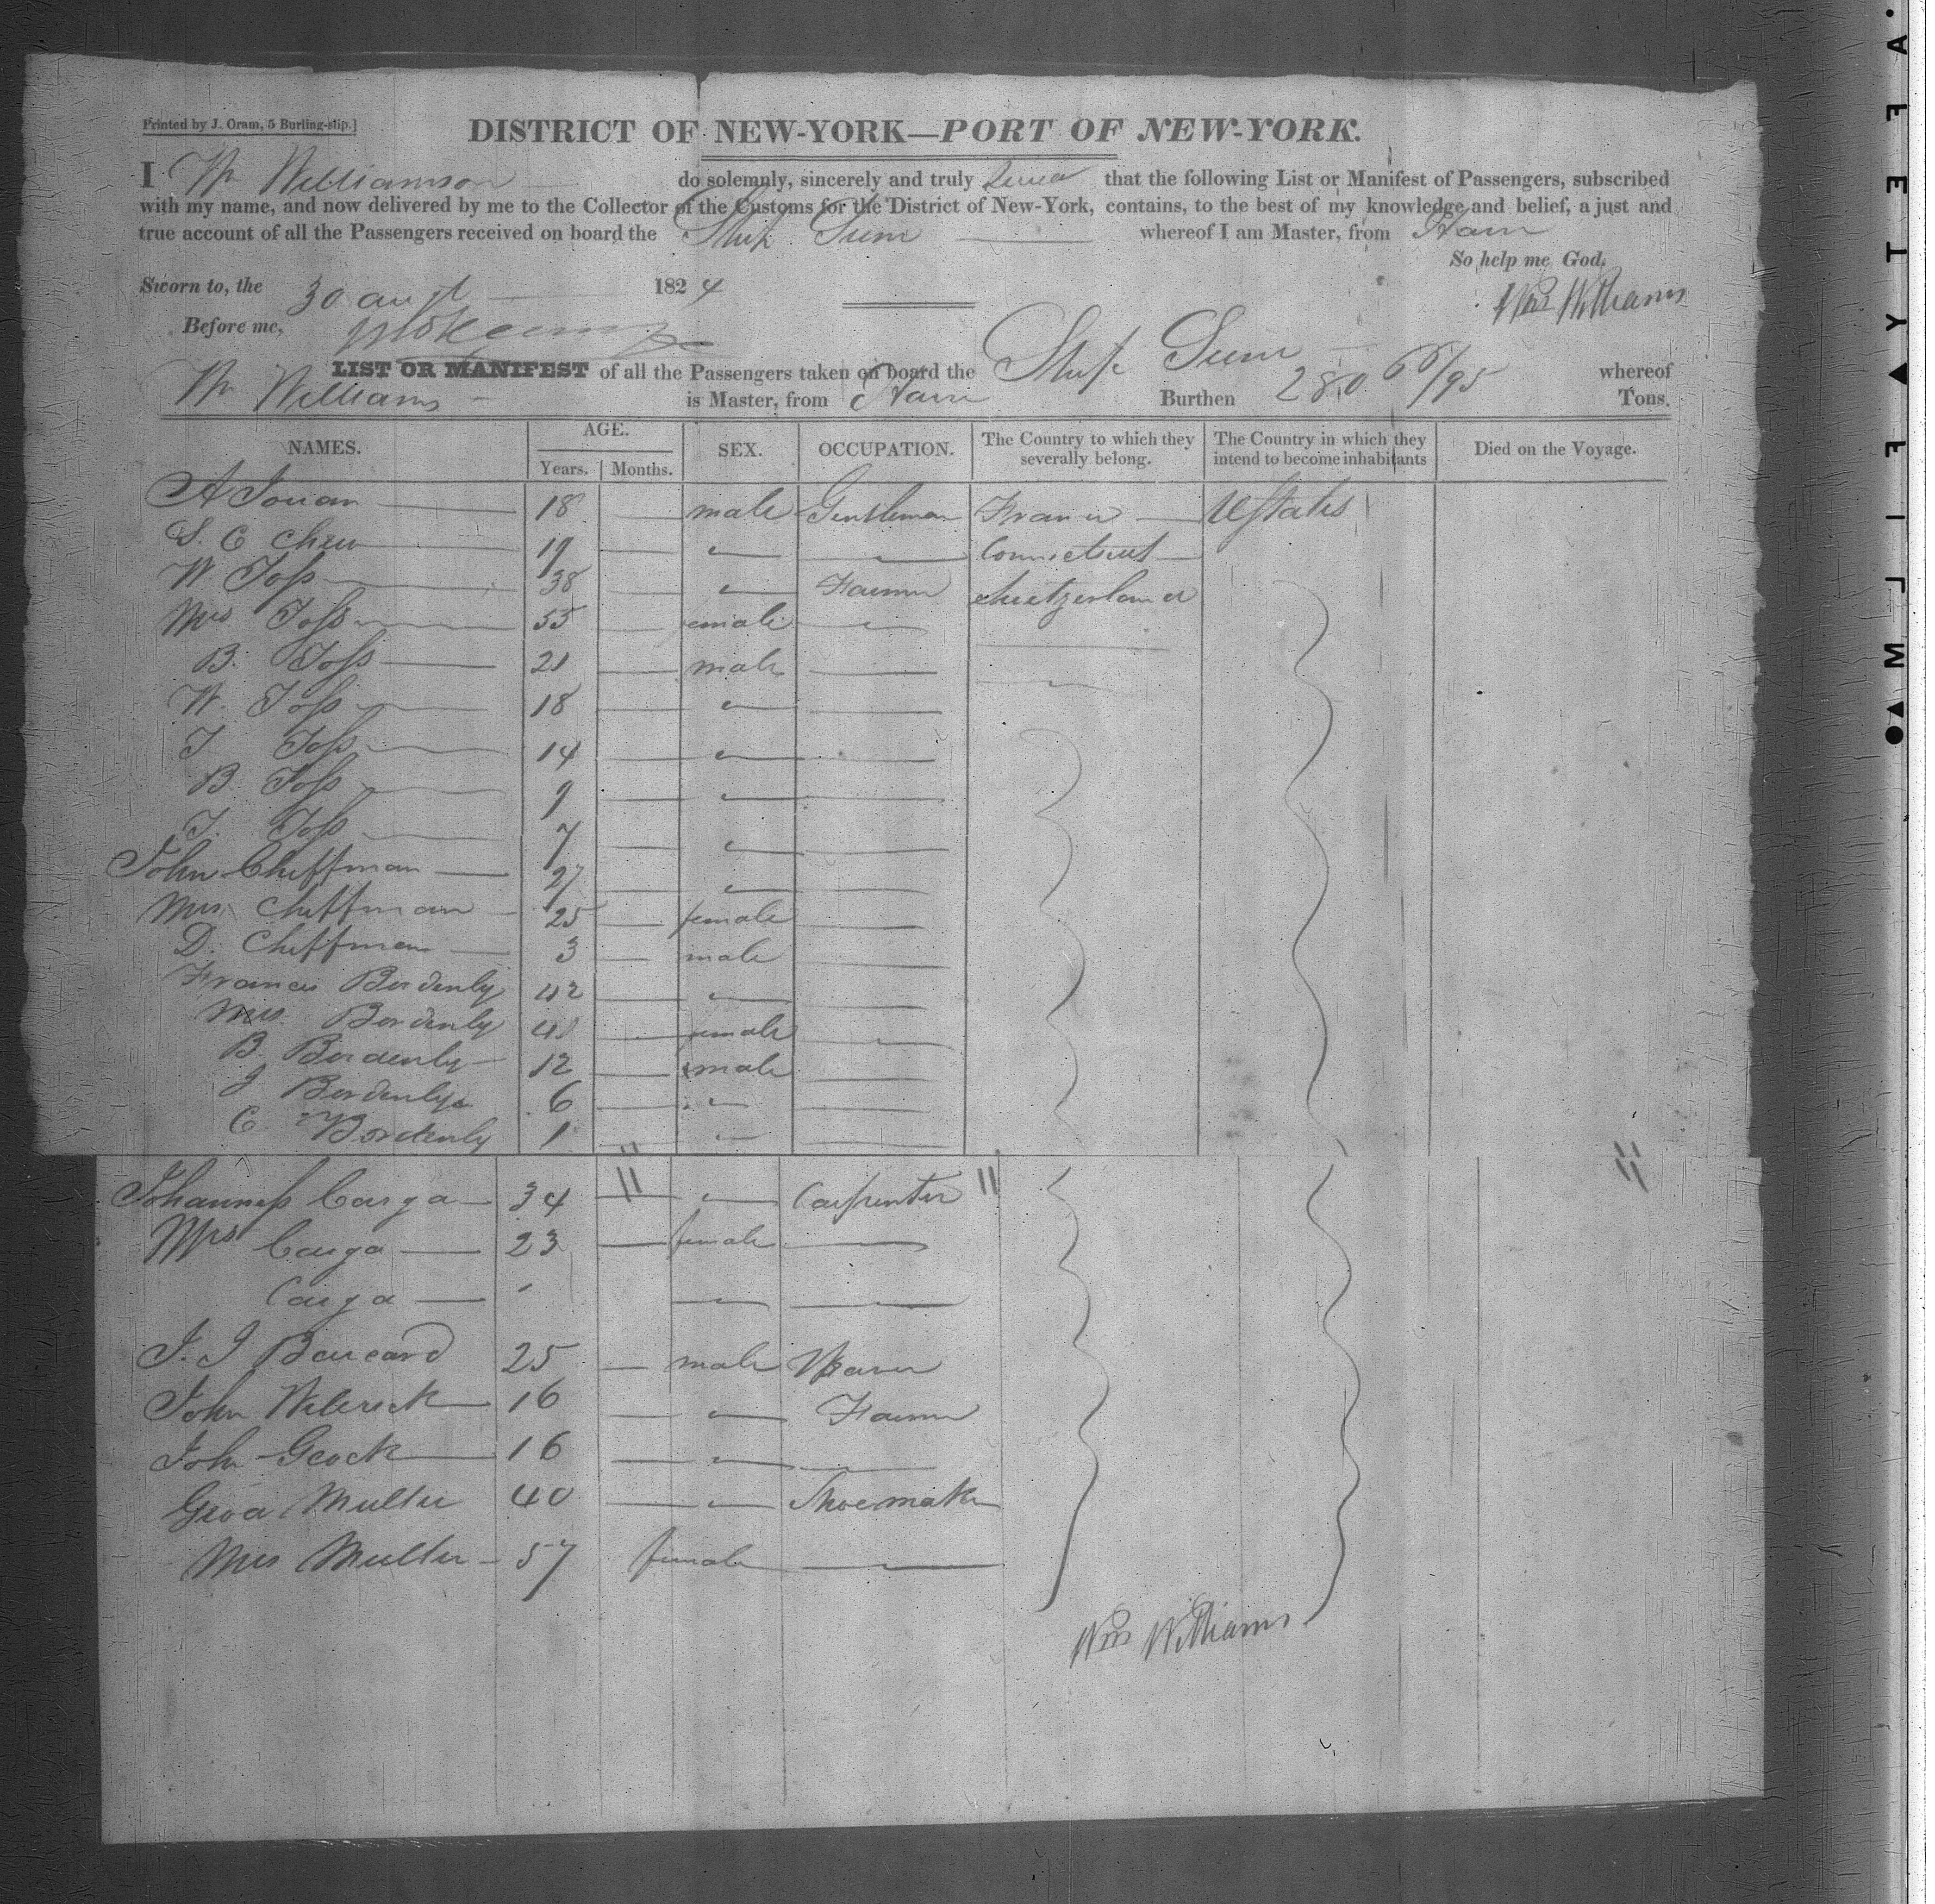 Printed by J. Oram, 5 Burling-slip.]
DISTRICT OF NEW-YORK—PORT OF NEW-YORK.
I Wm Williamson do solemnly, sincerely and truly that the following List or Manifest of Passengers, subscribed
with my name, and now delivered by me to the Collector of the Customs for the District of New-York, contains, to the best of my knowledge and belief, a just and
true account of all the Passengers received on board the Ship whereof I am Master, from Havre
So help me God.
Sworn to, the 30 augt 1824
Wm Williams
Before me,
LIST OR MANIFEST of all the Passengers taken on board the Ship whereof
Wm Williams is Master, from Havre Burthen 280 66/95 Tons.
NAMES. AGE. Years. Months. SEX. OCCUPATION. The Country to which they severally belong. The Country in which they intend to become inhabitants Died on the Voyage.
A Jouan 18 male Gentleman France UStates
S. C Chew 19 Connecticut
W Joss 38 Farmer Switzerland
Mrs Joss 35 female
B. Joss 21 male
W. Joss 18
J Joss 14
B. Joss 9
J. Joss 7
John Chiffman 27
Mrs Chiffman 25 female
D. Chiffman 3 male
Francis Bordenly 42
Mrs. Bordenly 40 female
B. Bordenly 12 male
J Bordenly 6
C Bordenly 1
Johanness Carga 34 Carpenter
Mrs Carga 23 female
Carga
J. J 25 male Weaver
John 16 Farmer
John Geock 16
Muller 40 Shoemaker
Mrs Muller 57 female
Wm Williams